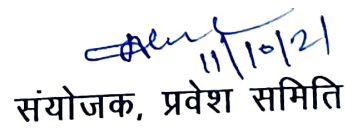 11/10/21
संयोजक, प्रवेश समिति